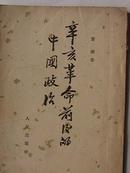 辛亥革命前后的
中國政治
人民出版社